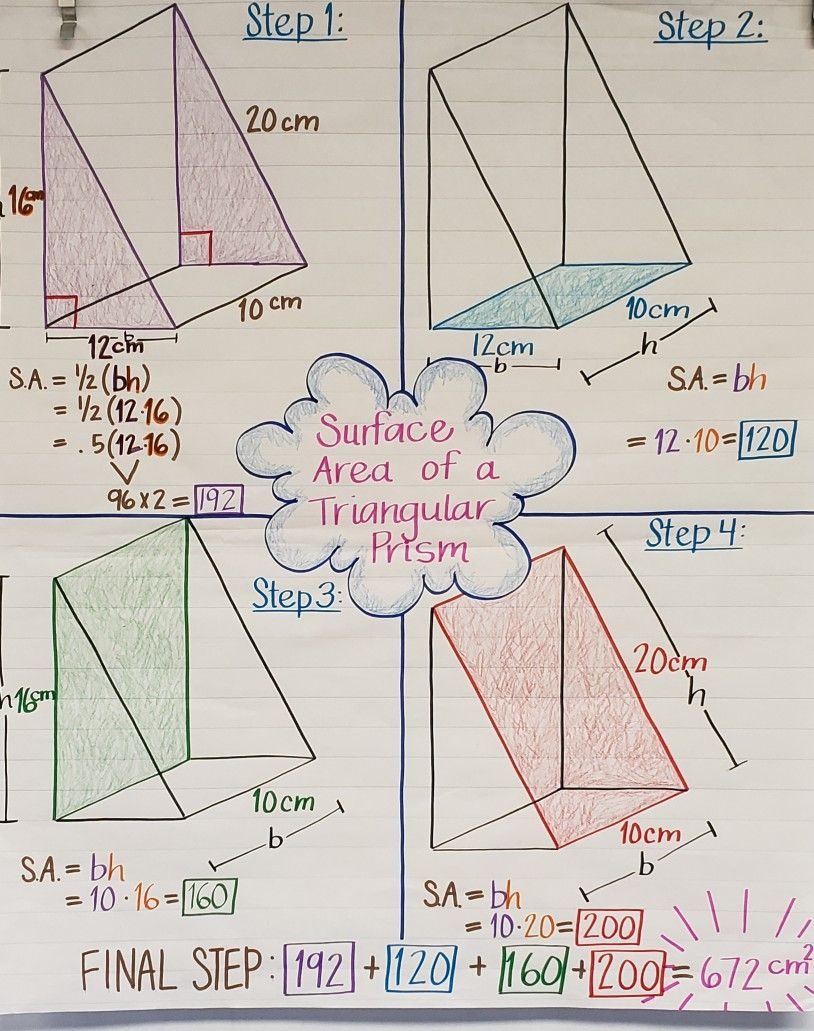 Surface
Area of a
Triangular
Prism
Step 1:
20cm
16cm
10cm
12cm
b
S.A. = ½(bh)
= ½(12·16)
= .5(12·16)
96 x 2 = 192
Step 2:
10cm
h
12cm
b
S.A. = bh
= 12·10 = 120
Step 3:
h 16cm
10cm
b
S.A. = bh
= 10·16 = 160
Step 4:
20cm
h
10cm
b
S.A. = bh
= 10·20 = 200
FINAL STEP: 192 + 120 + 160 + 200 = 672 cm²